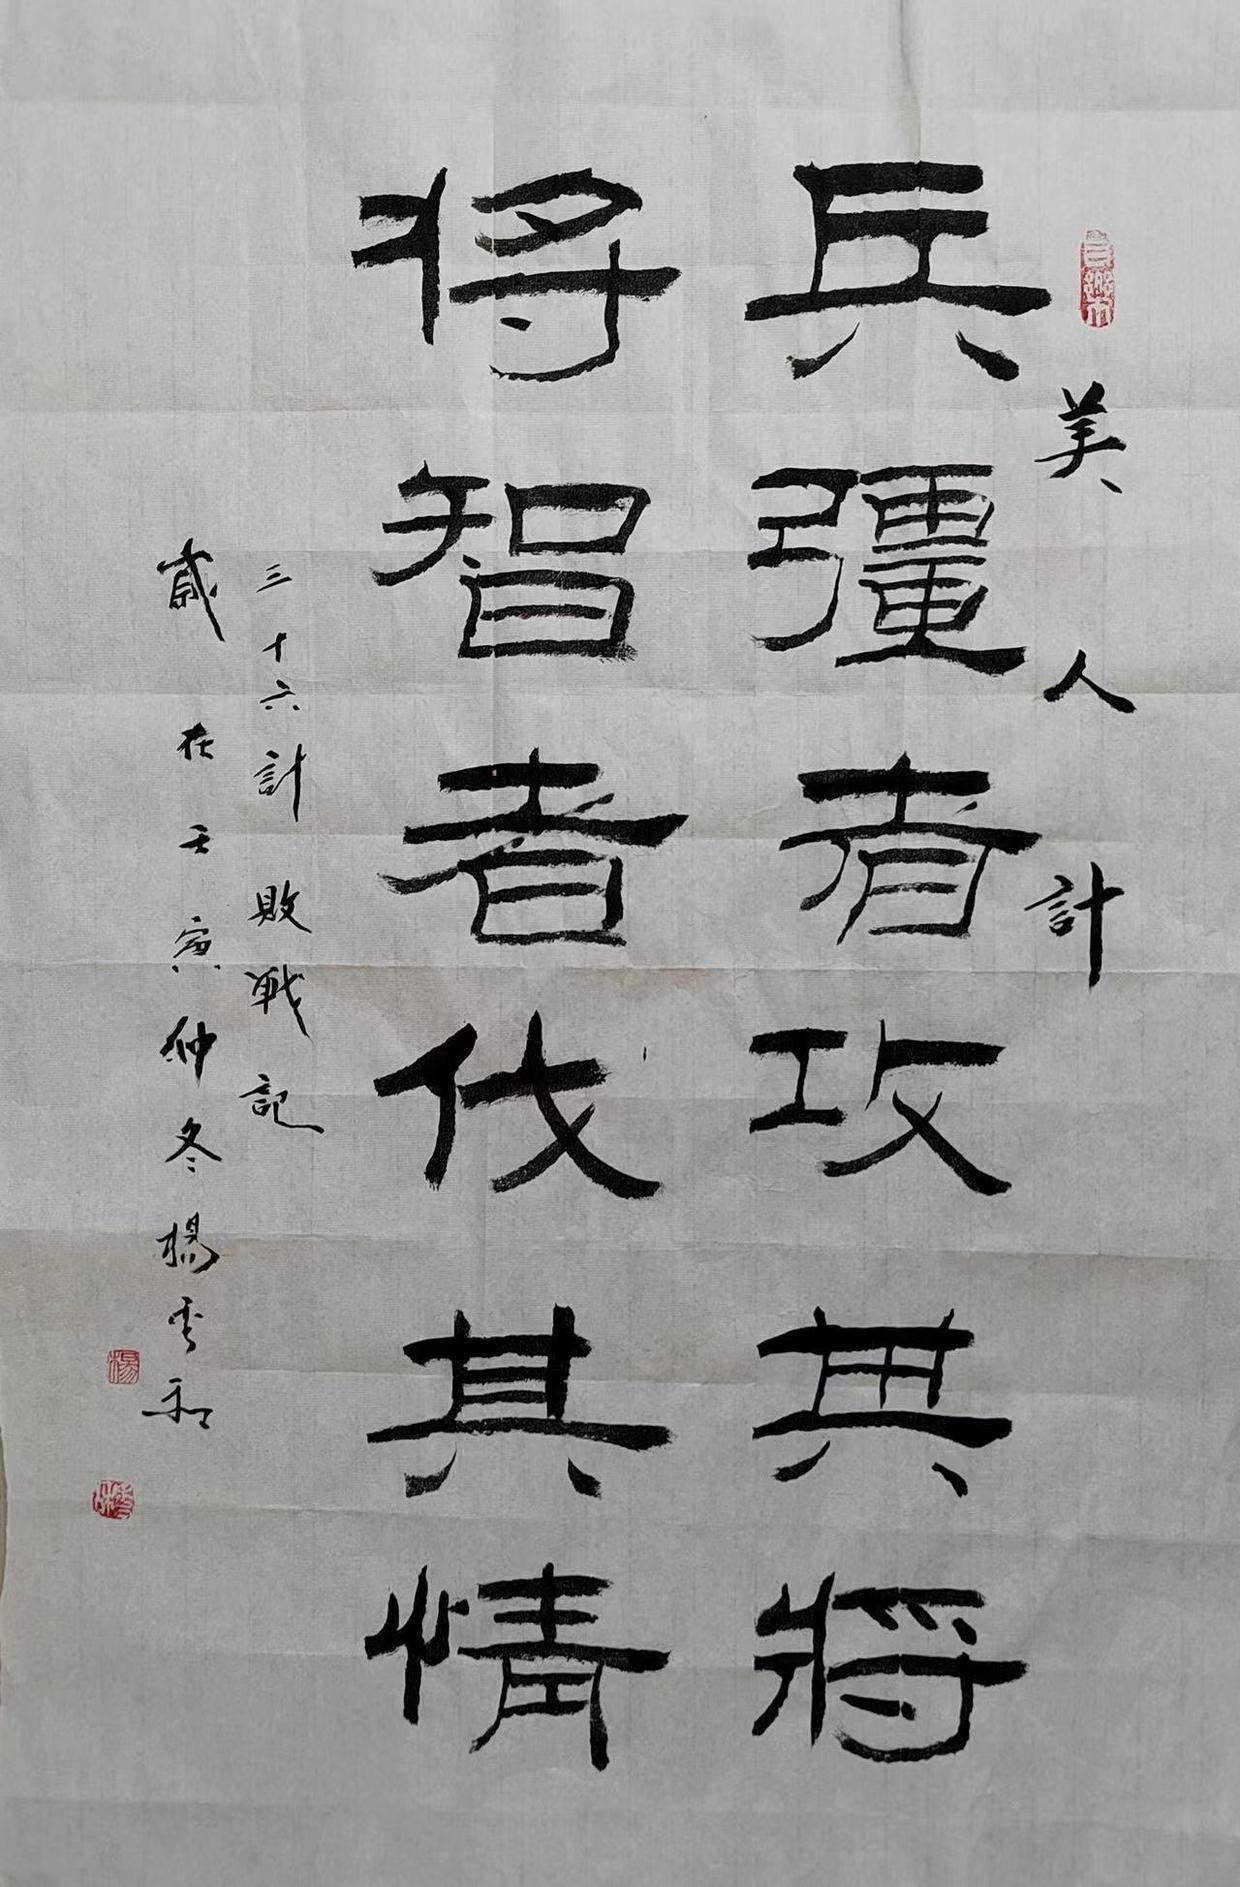 美人計
兵彊者攻其將
将智者伐其情
三十六計敗戰記
歲在壬寅仲冬楊雲和
楊